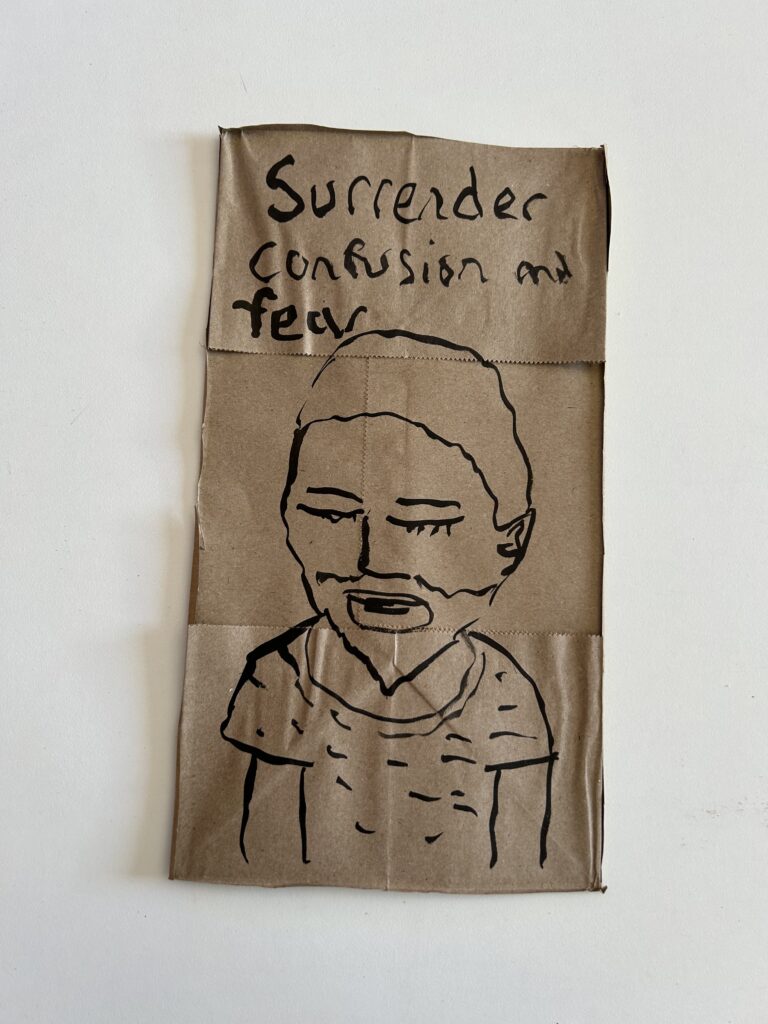 Surrender
confusion and
fear